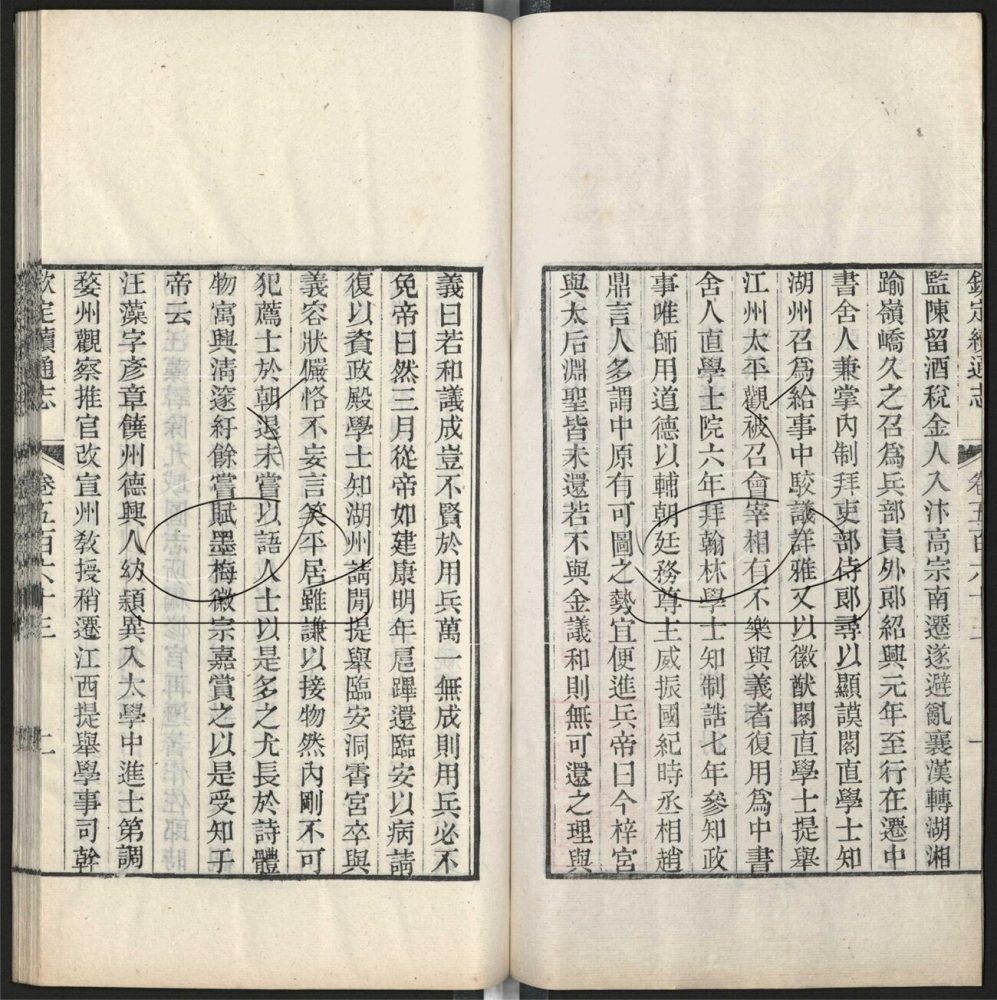 欽定續通志 卷五百六十三 一
監陳留酒稅金人入汴高宗南遷遂避亂襄漢轉湖湘
踰嶺嶠久之召爲兵部員外郎紹興元年至行在遷中
書舍人兼掌內制拜吏部侍郎尋以顯謨閣直學士知
湖州召爲給事中駮議詳雅又以徽猷閣直學士提舉
江州太平觀被召會宰相有不樂與義者復用爲中書
舍人直學士院六年拜翰林學士知制誥七年參知政
事唯師用道德以輔朝廷務尊主威振國紀時丞相趙
鼎言人多謂中原有可圖之勢宜便進兵帝曰今梓宮
與太后淵聖皆未還若不與金議和則無可還之理與
義曰若和議成豈不賢於用兵萬一無成則用兵必不
免帝曰然三月從帝如建康明年扈蹕還臨安以病請
復以資政殿學士知湖州請閒提舉臨安洞霄宮卒與
義容狀儼恪不妄言笑平居雖謙以接物然內剛不可
犯薦士於朝退未嘗以語人士以是多之尤長於詩體
物寓興淸邃紆餘嘗賦墨梅徽宗嘉賞之以是受知于
帝云
汪藻字彥章饒州德興人幼穎異入太學中進士第調
婺州觀察推官改宣州敎授稍遷江西提舉學事司幹
欽定續通志 卷五百六十三 二